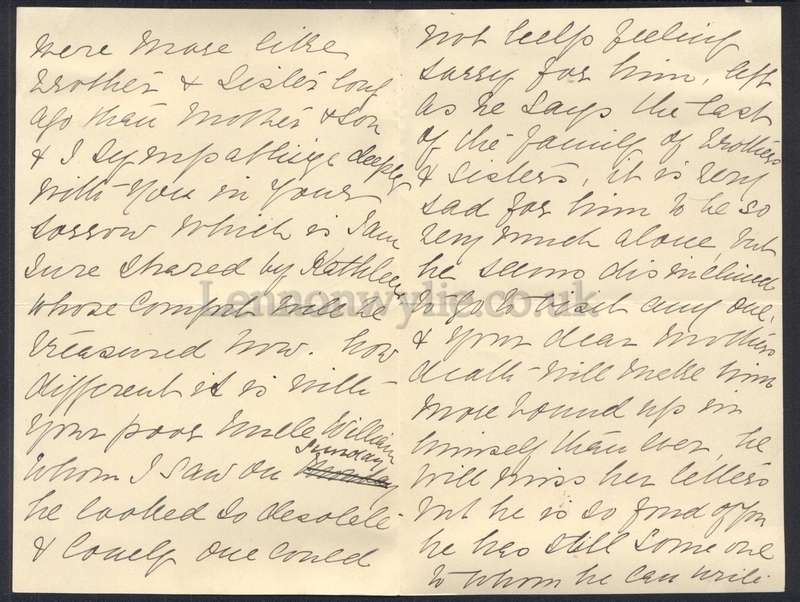 were more like
brother & sister long
ago than Mother & son
& I sympathize deeply
with you in your
sorrow which is I am
sure shared by Kathleen
whose comfort will be
treasured now. how
different it is with
your poor Uncle William
whom I saw on Monday Sunday
he looked so desolate
& lonely one could
not help feeling
sorry for him, left
as he says the last
of the family of brothers
& sisters, it is very
sad for him to be so
very much alone, but
he seems disinclined
to go to visit any one,
& your dear Mothers
death will make him
more bound up in
himself than ever, he
will miss her letters
but he is so fond of you
he has still some one
to whom he can write.
Lennonwylie.co.uk